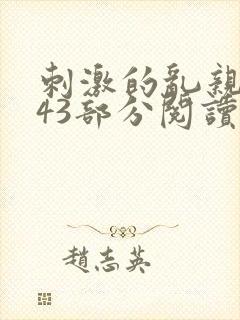 刺激的亂親
43部分閱讀
趙志英